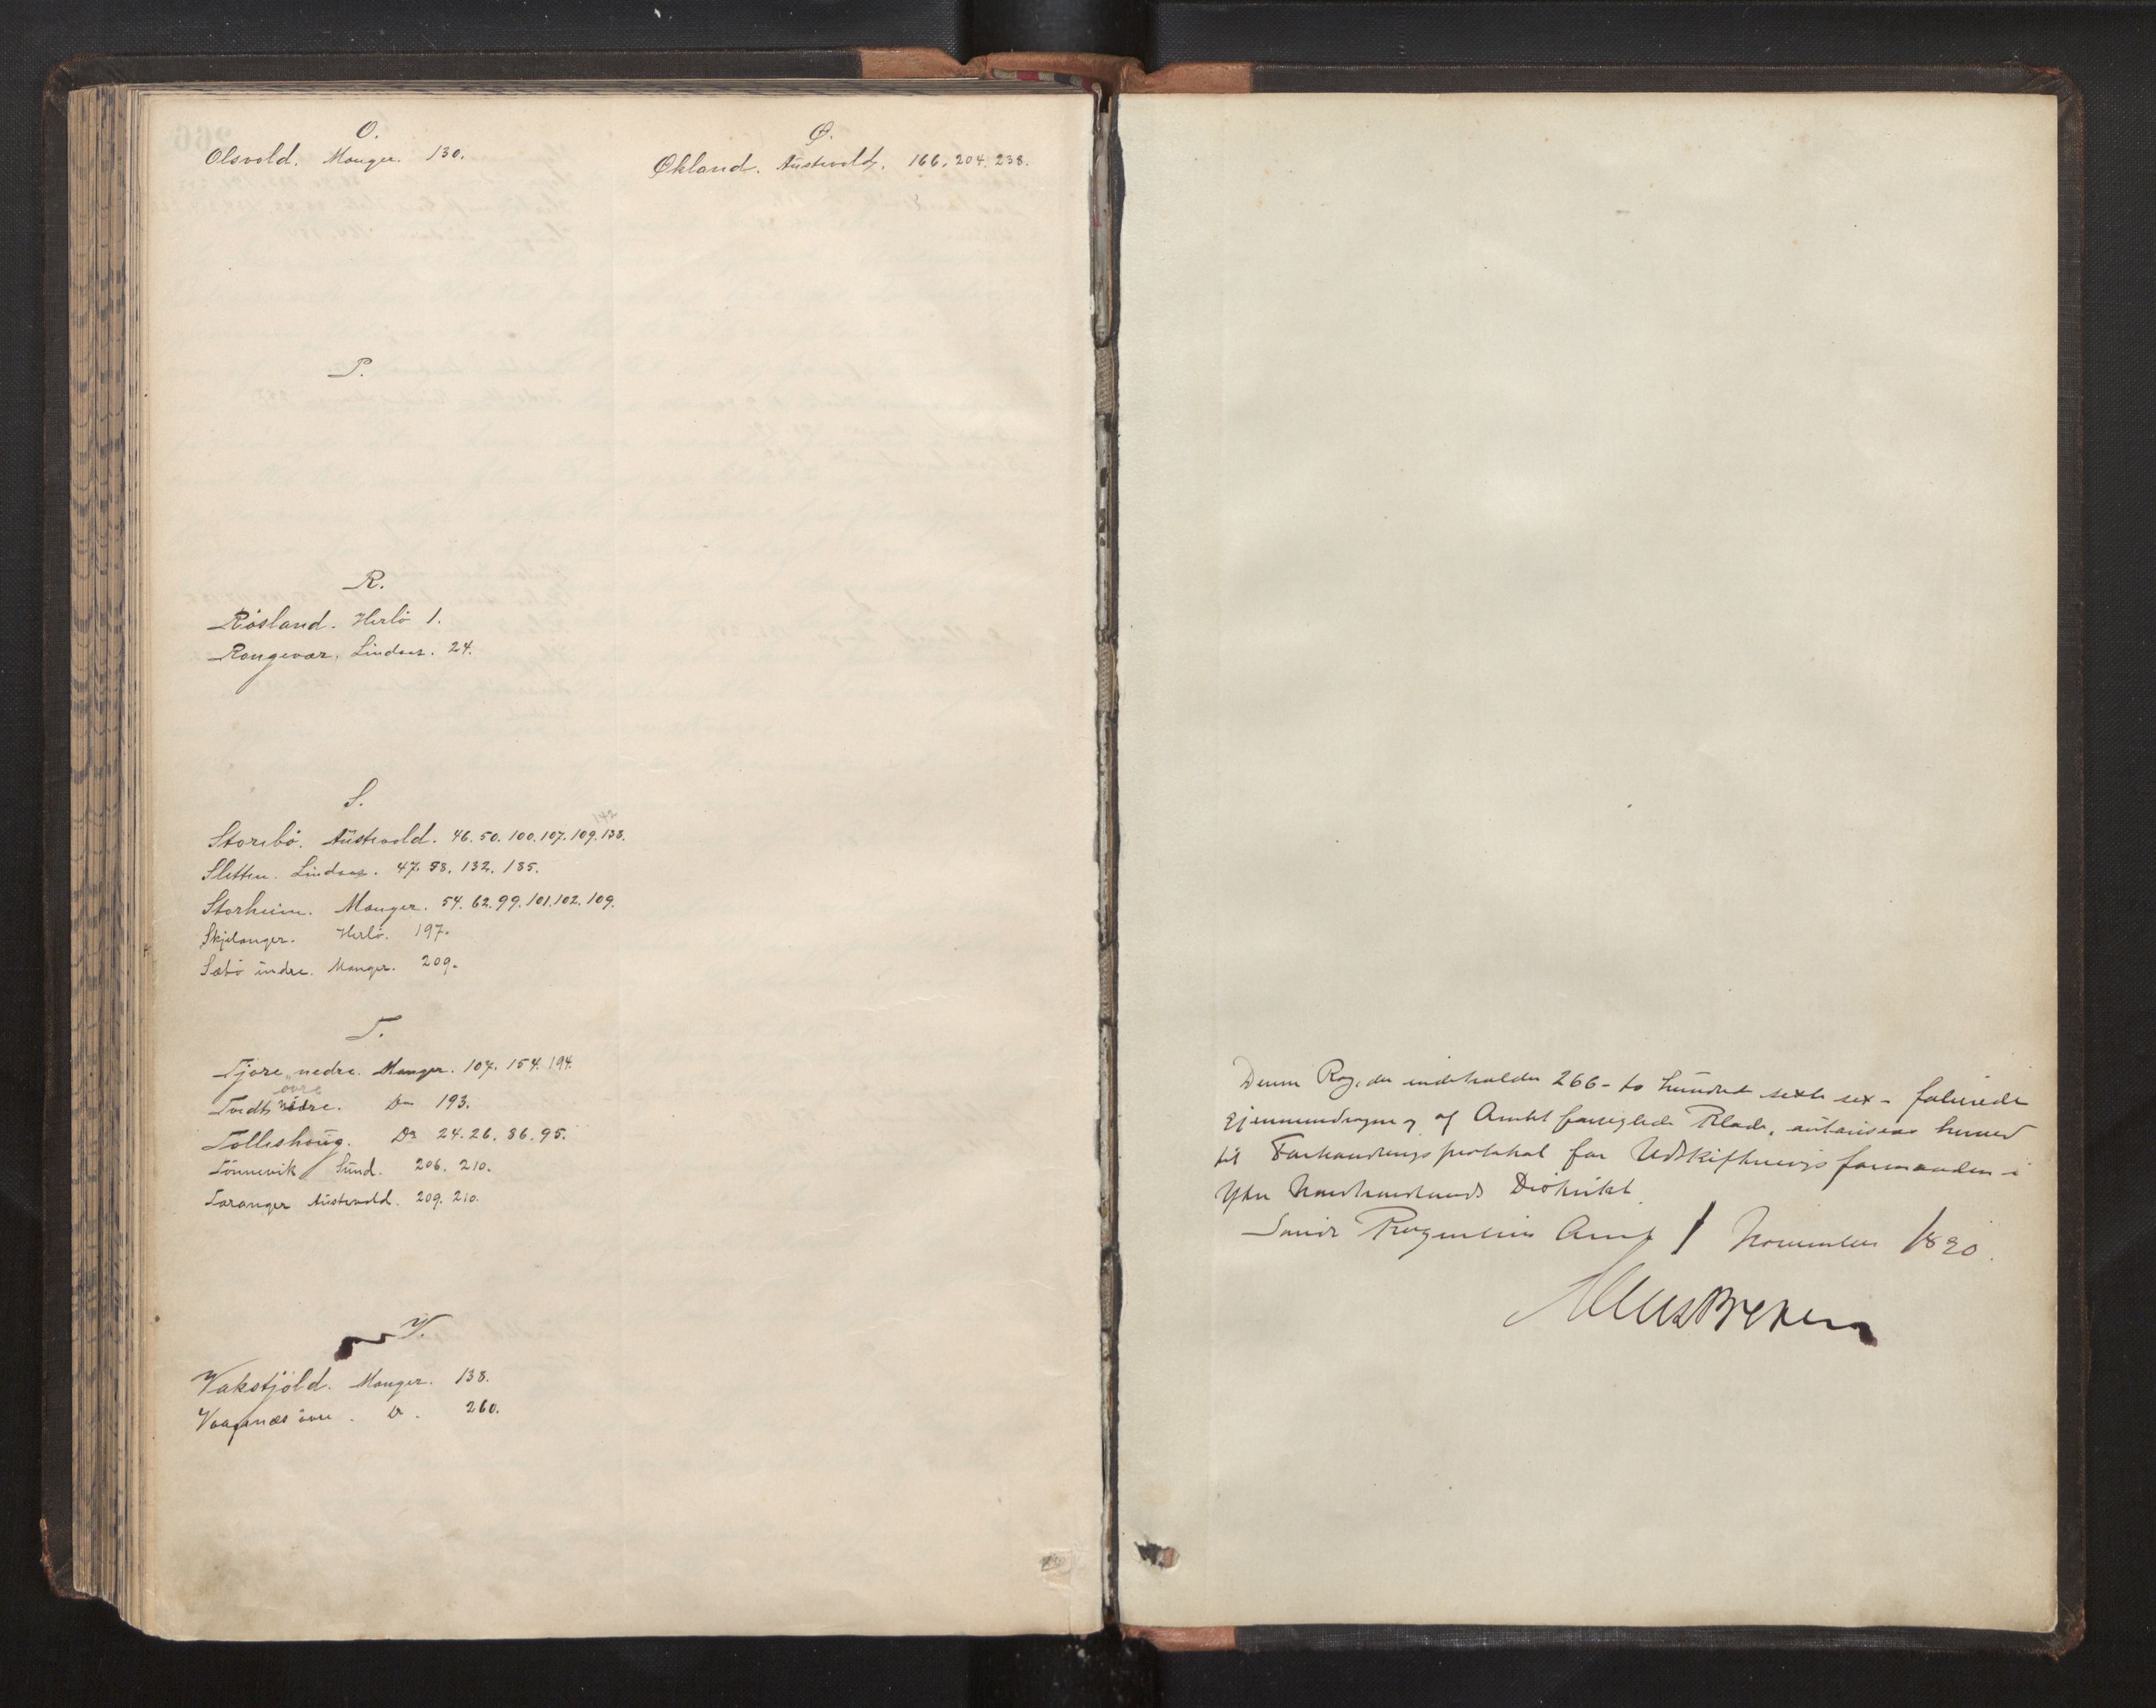 O.
Olsvold. Manger. 130.
P.
R.
Rösland. Herlö 1.
Rongevær. Lindaas. 24.
S.
142
Storebö. Austevold. 46. 50. 100. 107. 109. 138.
Sletten. Lindaas. 47. 98. 132. 185.
Storheim. Manger. 54. 62. 99. 101. 102. 109.
Skjelanger. Herlö. 197.
Sæbö indre. Manger. 209.
T.
Tjore nedre. Manger. 107. 154. 194.
övre
Tvedt nedre. Do 193.
Tolleshoug. Do 24. 26. 86. 95.
Tönnevik Sund. 206. 210.
Toranger Austevold. 209. 210.
V.
Vakstjöld. Manger. 138.
Vaagenæs övre. Do. 260.
Ø.
Økland. Austevold. 166. 204. 238.
Denne Bog, der indeholder 266 - to hundred sexti sex - folierede
gjennemdragne og af Amtet forseglede Blade, autoriseres herved
til Forhandlingsprotokol for Udskiftningsformanden i
Ytre Nordhordlands Distrikt.
Søndre Bergenhus Amt 1 November 1890.